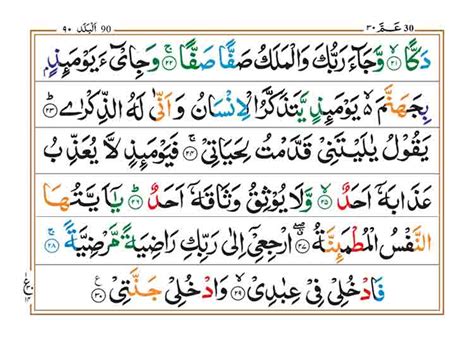 عَمّ ٣٠ 30
90 اَلْبَلَد ٩٠
دَكًّا ۙ‏﴿٢١﴾ وَّجَآءَ رَبُّكَ وَالْمَلَكُ صَفًّا صَفًّا ۚ‏﴿٢٢﴾ وَجِایْٓءَ یَوْمَئِذٍۭ
بِجَهَنَّمَ ۙ۬ یَوْمَئِذٍ یَّتَذَكَّرُ الْاِنْسَانُ وَاَنّٰی لَهُ الذِّكْرٰی ؕ‏﴿٢٣﴾
یَقُوْلُ یٰلَیْتَنِیْ قَدَّمْتُ لِحَیَاتِیْ ۚ‏﴿٢٤﴾ فَیَوْمَئِذٍ لَّا یُعَذِّبُ
عَذَابَهٗۤ اَحَدٌ ۙ‏﴿٢٥﴾ وَّلَا یُوْثِقُ وَثَاقَهٗۤ اَحَدٌ ؕ‏﴿٢٦﴾ یٰۤاَیَّتُهَا
النَّفْسُ الْمُطْمَئِنَّةُ ۗۖ‏﴿٢٧﴾ ارْجِعِیْۤ اِلٰی رَبِّكِ رَاضِیَةً مَّرْضِیَّةً ۚ‏﴿٢٨﴾
فَادْخُلِیْ فِیْ عِبٰدِیْ ۙ‏﴿٢٩﴾ وَادْخُلِیْ جَنَّتِیْ ‏﴿٣٠﴾